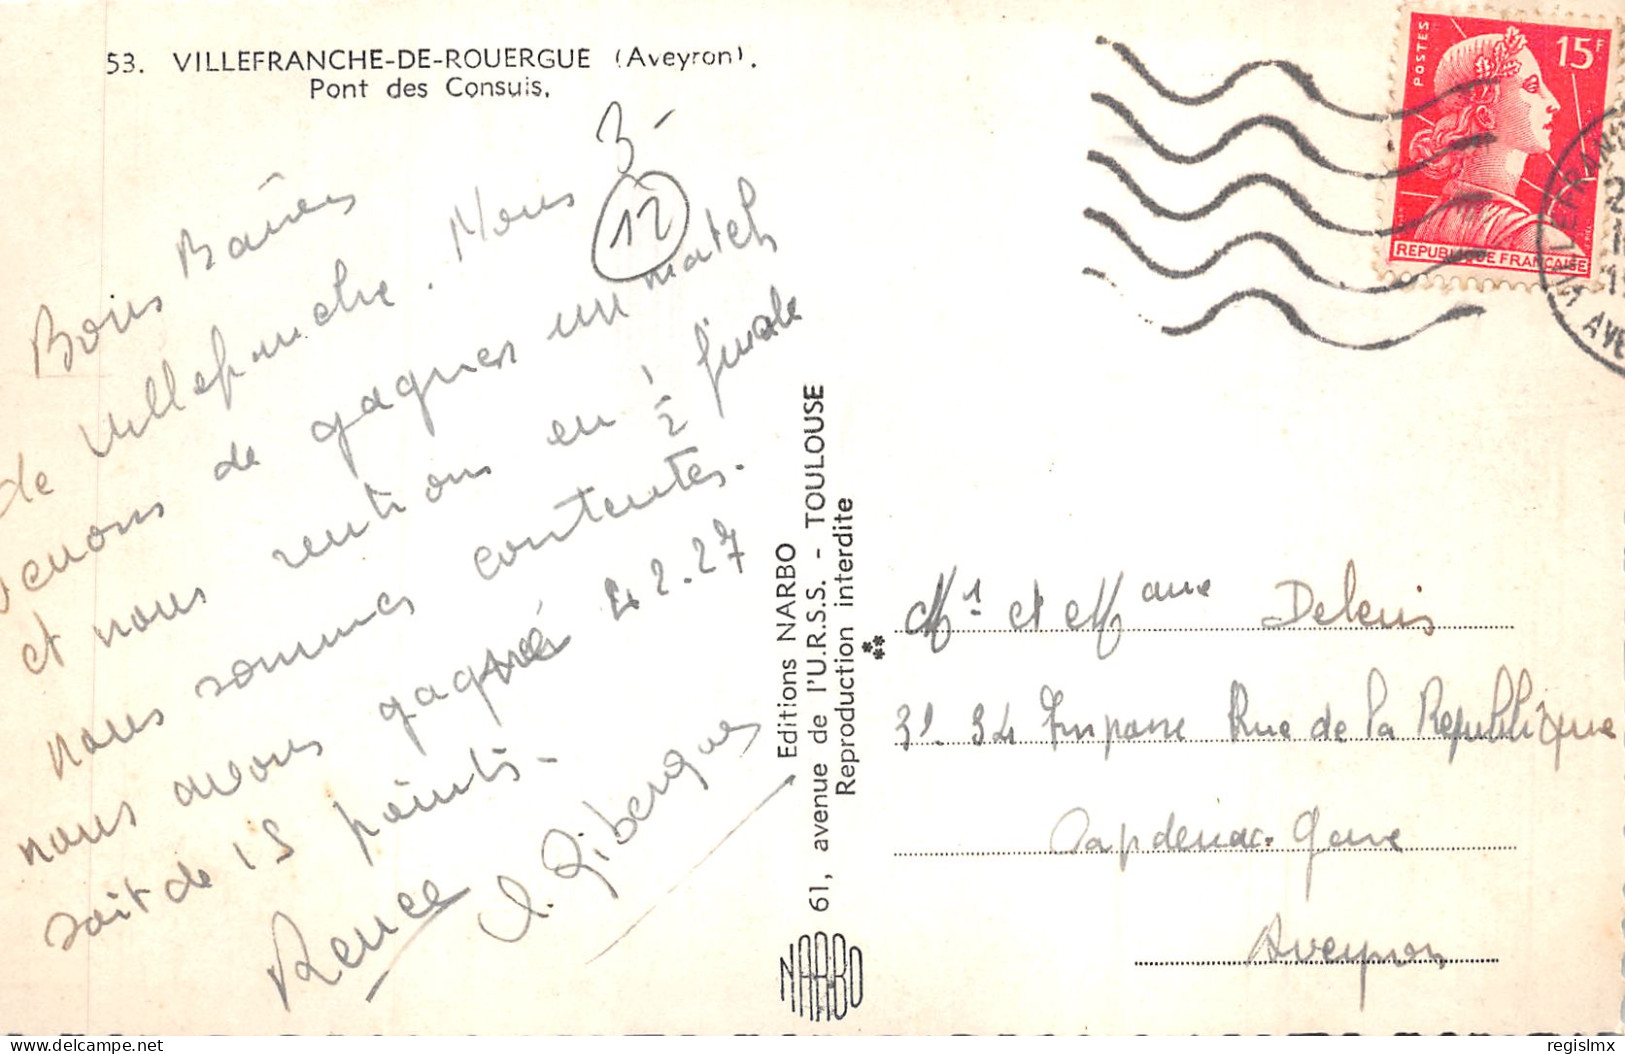 53. VILLEFRANCHE-DE-ROUERGUE (Aveyron).
Pont des Consuls.
3-
12
Bons Baisers
de Villefranche. Nous
venons de gagner un match
et nous rentrons en 1/2 finale
nous sommes contentes.
nous avons gagné 42-27
soit de 15 points.
Renée
Editions NARBO
61, avenue de l'U.R.S.S. - TOULOUSE
Reproduction interdite
NARBO
POSTES
15F
REPUBLIQUE FRANÇAISE
VILLEFRANC
AVE
Mr et Mme
34 Impasse Rue de la République
Capdenac-Gare
Aveyron
delcampe.net
regislmx